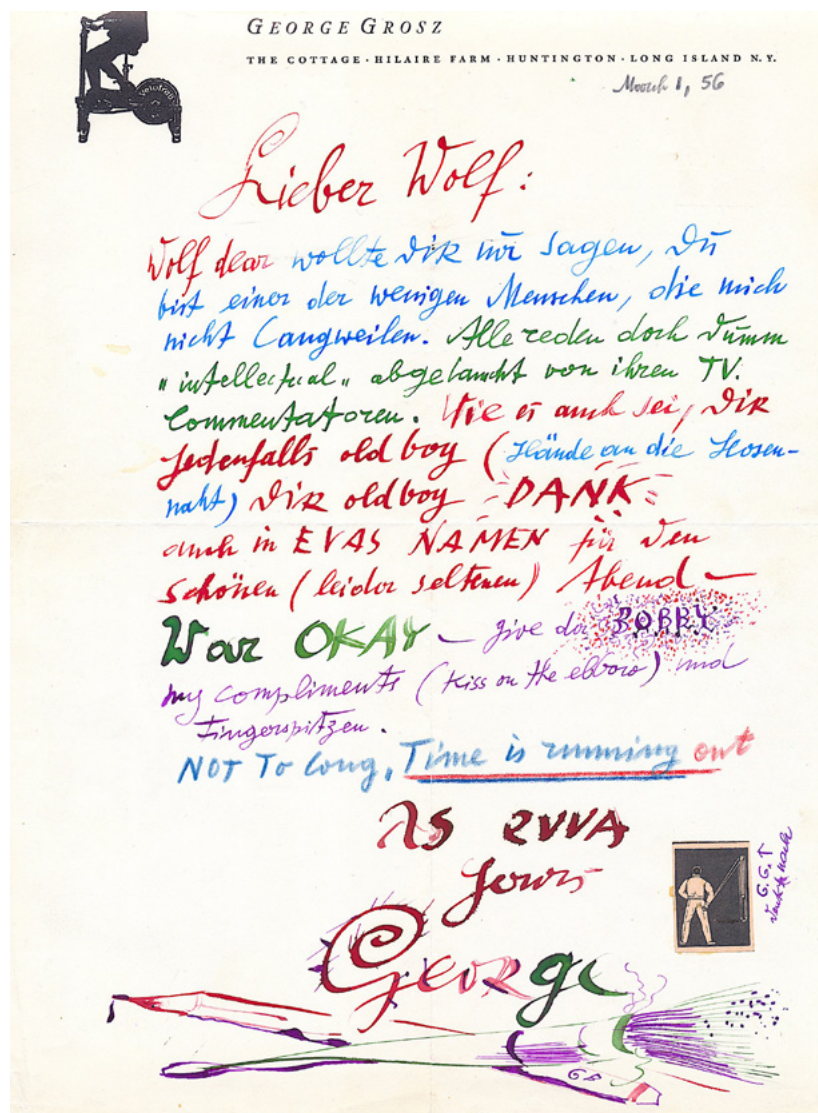 GEORGE GROSZ
THE COTTAGE · HILAIRE FARM · HUNTINGTON · LONG ISLAND N.Y.
March 1, 56
Velotrab
Lieber Wolf:
Wolf dear wollte Dir nur sagen, Du
bist einer der wenigen Menschen, die mich
nicht Langweilen. Alle reden doch dumm
"intellectual" abgelauscht von ihren TV.
Commentatoren. Wie es auch sei, Dir
Jedenfalls old boy (Hände an die Hosen-
naht) Dir old boy DANK
auch in EVAS NAMEN für den
Schönen (leider seltenen) Abend —
War OKAY — give der BOBBY
my compliments (Kiss on the ) und
Fingerspitzen.
NOT To Long, Time is running out
As
Yours
George
G.G. ↑
denkt nach
GB